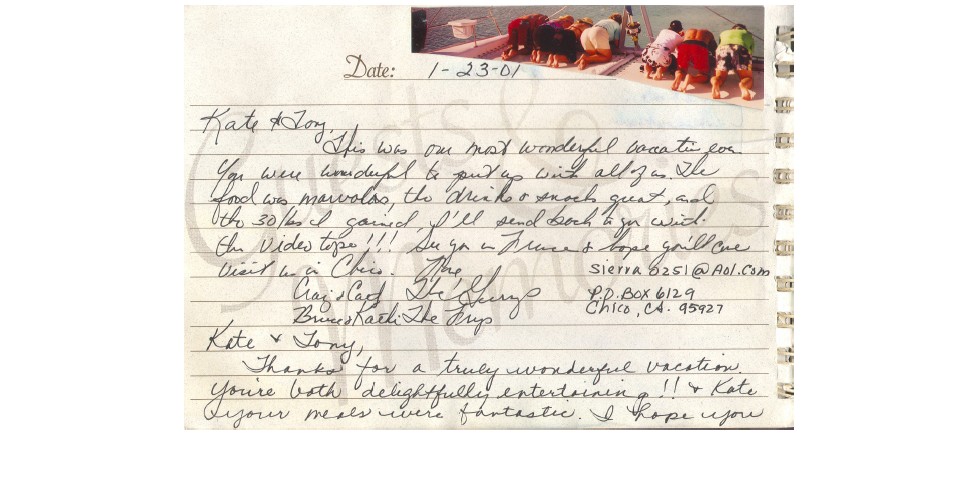 Date: 1-23-01
Guests & Memories
Kate & Tony,
This was our most wonderful vacation ever.
You were wonderful to put up with all of us. The
food was marvolas, the drinks & snacks great, and
the 30 lbs I gained, I'll send back to you with
the video tape!!! See you in & hope you'll come
visit us in Chico. The
sierra0251@AOL.com
Craig & Carol The
P.O. BOX 6129
Bruce & Kathi The Frys
Chico, CA. 95927
Kate & Tony,
Thanks for a truly wonderful vacation.
You're both delightfully entertaining!! & Kate
your meals were fantastic. I hope you